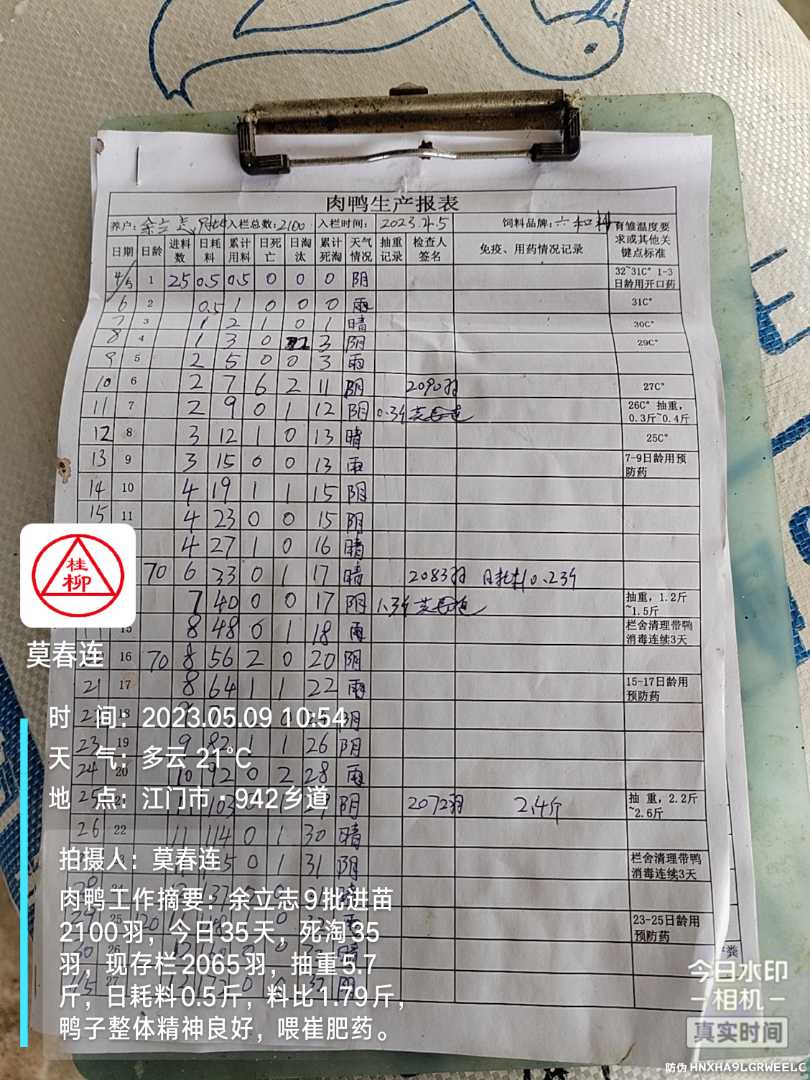 肉鸭生产报表
养户: 余立志 入栏总数: 2100 入栏时间: 2023.4.5 饲料品牌: 六和料 有雏温度要求或其他关键点标准
日期 日龄 进料数 日耗料 累计用料 日死亡 日淘汰 累计死淘 天气情况 抽重记录 检查人签名 免疫、用药情况记录
4/5 1 25 0.5 0.5 0 0 0 阴 32~31C° 1-3日龄用开口药
6 2 0.5 1 0 0 0 雨 31C°
7 3 1 2 1 0 1 晴 30C°
8 4 1 3 0 2 3 阴 29C°
9 5 2 5 0 0 3 雨
10 6 2 7 6 2 11 阴 2090羽 27C°
11 7 2 9 0 1 12 阴 0.3斤 莫春连 26C° 抽重,0.3斤~0.4斤
12 8 3 12 1 0 13 晴 25C°
13 9 3 15 0 0 13 雨 7-9日龄用预防药
14 10 4 19 1 1 15 阴
15 11 4 23 0 0 15 阴
4 27 1 0 16 晴
70 6 33 0 1 17 晴 2083羽 日耗料0.23斤
7 40 0 0 17 阴 1.3斤 莫春连 抽重,1.2斤~1.5斤
15 8 48 0 1 18 雨 栏舍清理带鸭消毒连续3天
16 70 8 56 2 0 20 阴
21 17 8 64 1 1 22 雨 15-17日龄用预防药
18 阴
23 19 9 82 1 1 26 阴
24 20 10 92 0 2 28 雨
25 11 103 阴 2072羽 2.4斤 抽 重,2.2斤~2.6斤
26 22 11 114 0 1 30 晴
0 1 31 阴 栏舍清理带鸭消毒连续3天
25 120 雨 23-25日龄用预防药
26 晴
阴
粪
桂
柳
莫春连
时 间: 2023.05.09 10:54
天 气: 多云 21°C
地 点: 江门市 · 942乡道
拍摄人: 莫春连
肉鸭工作摘要: 余立志9批进苗
2100羽, 今日35天, 死淘35
羽, 现存栏2065羽, 抽重5.7
斤, 日耗料0.5斤, 料比1.79斤,
鸭子整体精神良好, 喂崔肥药。
今日水印
相机
真实时间
防伪 HNXHA9LGRWEELC